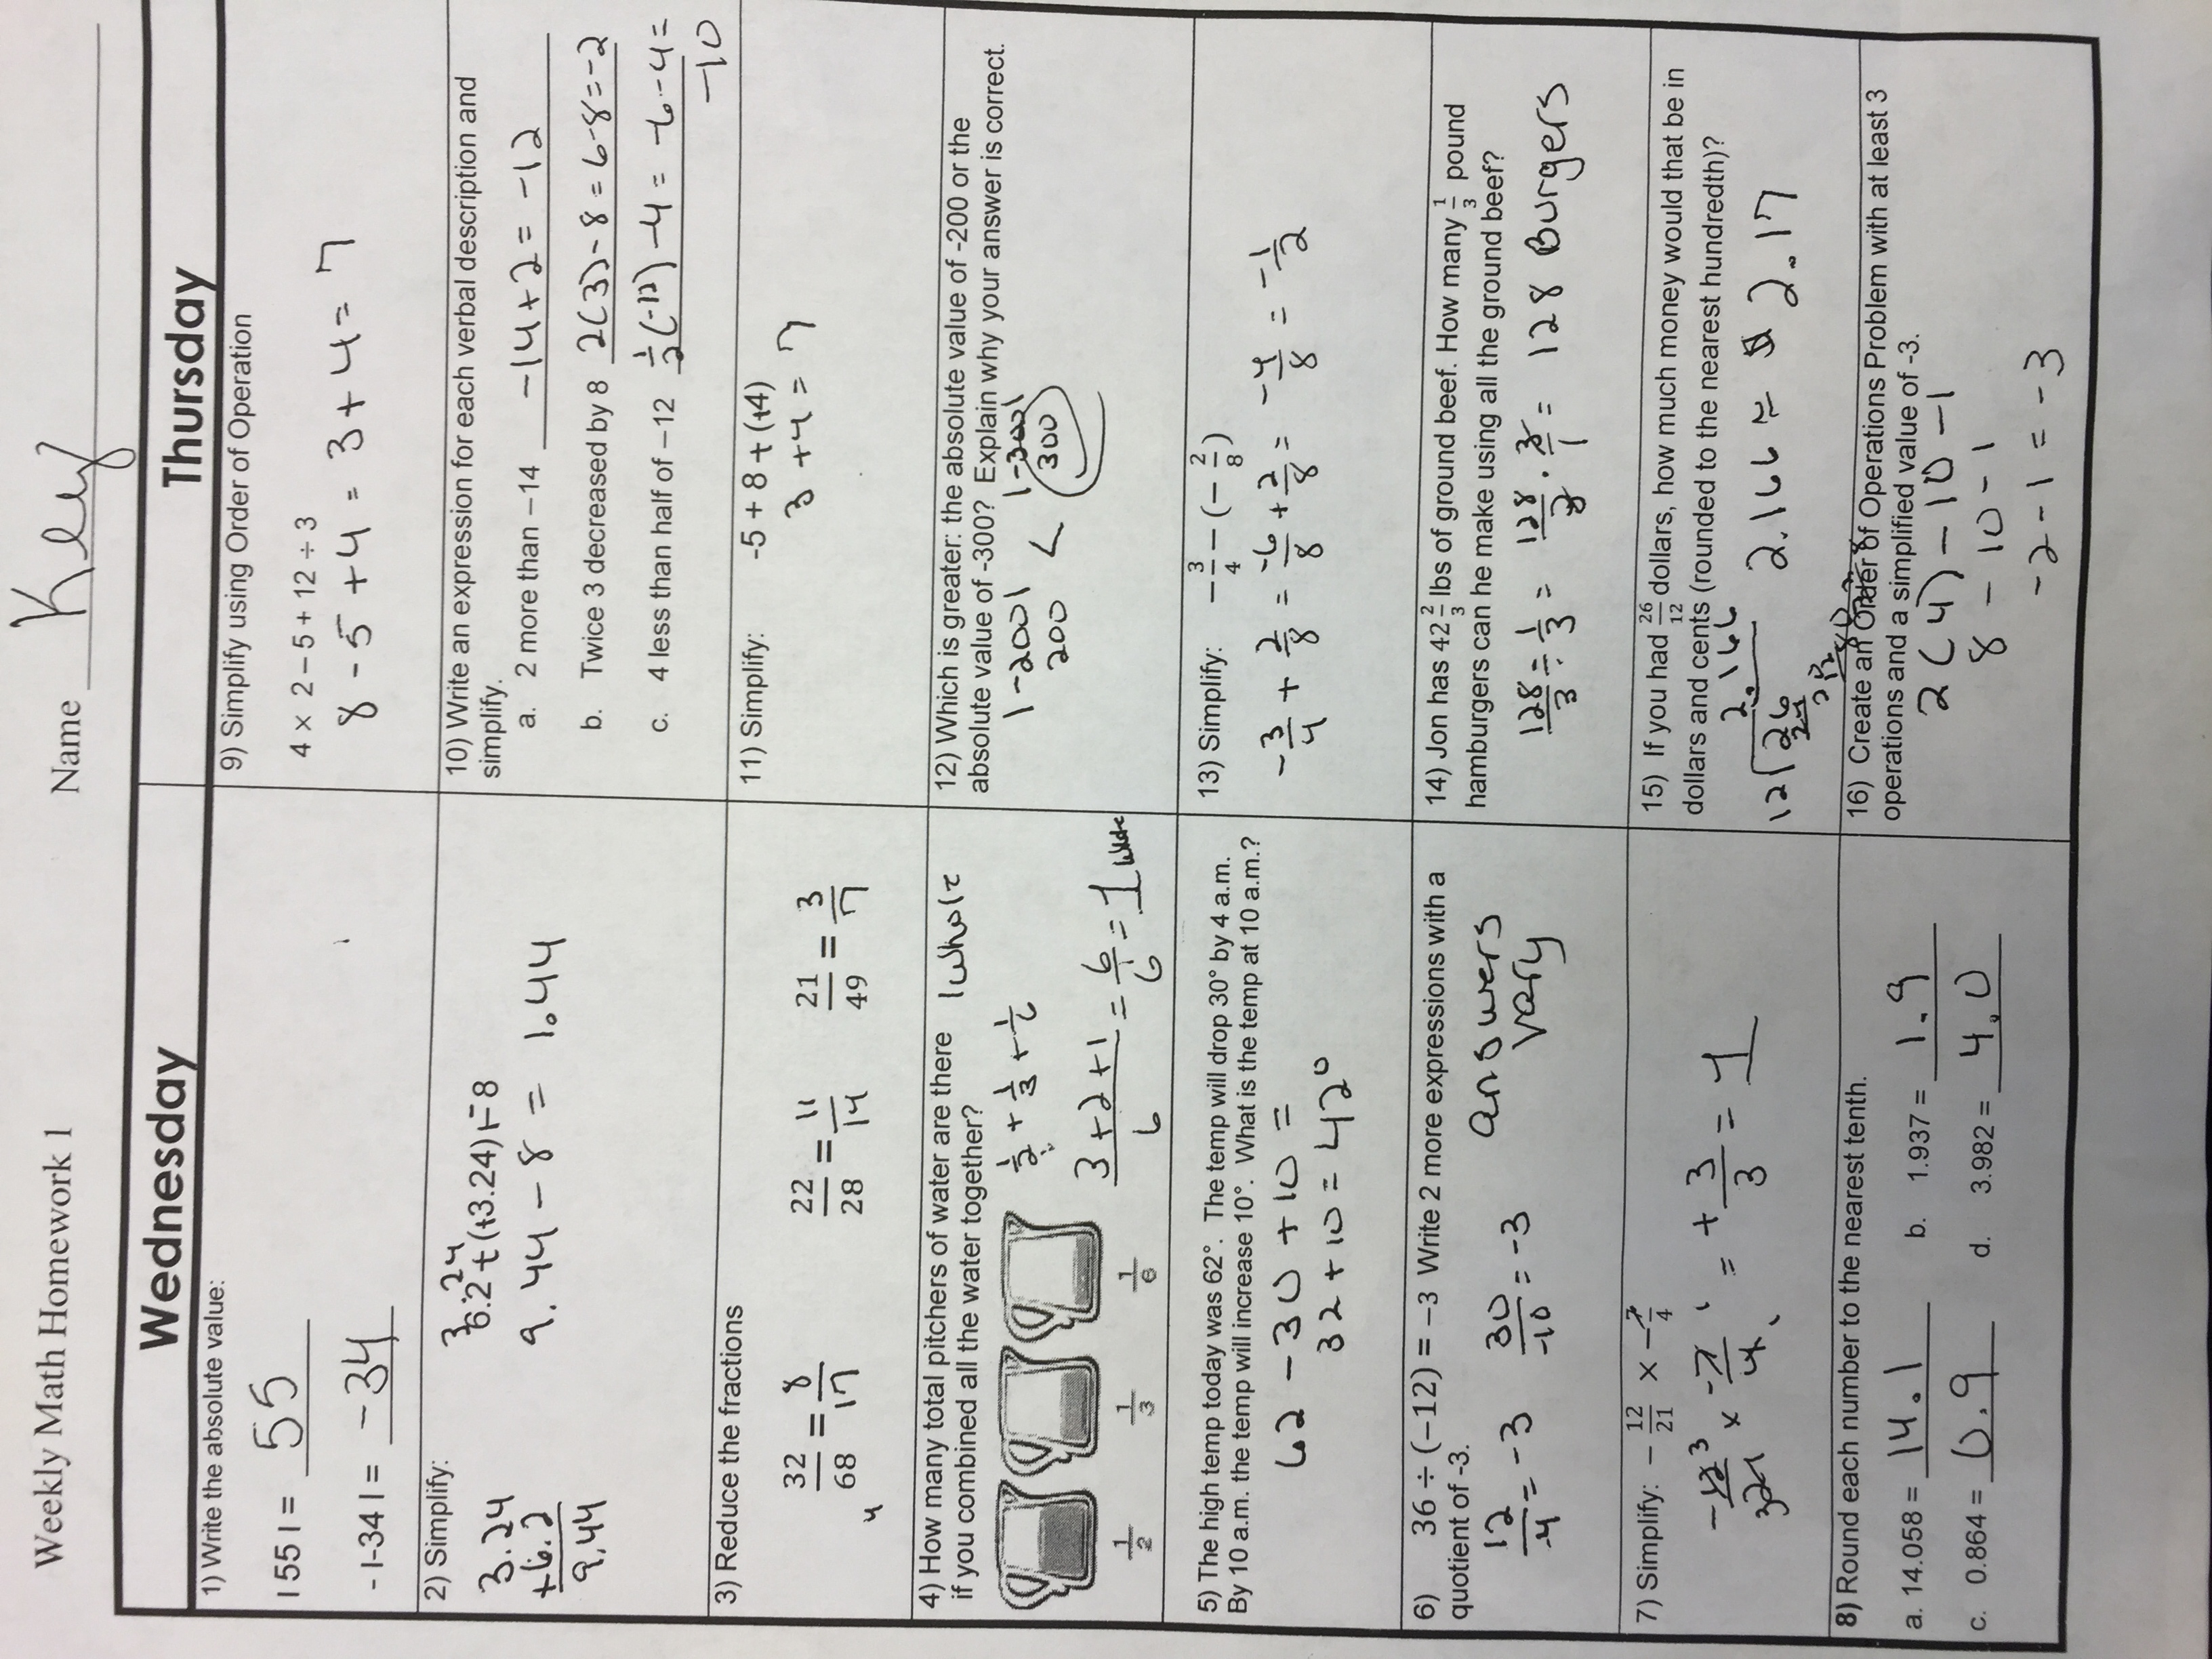 Weekly Math Homework 1
Name Key
Wednesday
1) Write the absolute value:
| 55 | = 55
- |-34 | = -34
2) Simplify:
6.2 + (+3.24) - 8
3.24
+6.2
9.44
9.44 - 8 = 1.44
3) Reduce the fractions
32/68 = 8/17 22/28 = 11/14 21/49 = 3/7
4) How many total pitchers of water are there
if you combined all the water together?
1 whole
1/2 + 1/3 + 1/6
(3 + 2 + 1)/6 = 6/6 = 1 whole
1/2 1/3 1/6
5) The high temp today was 62°. The temp will drop 30° by 4 a.m.
By 10 a.m. the temp will increase 10°. What is the temp at 10 a.m.?
62 - 30 + 10 =
32 + 10 = 42°
6) 36 ÷ (−12) = −3 Write 2 more expressions with a
quotient of -3.
12/-4 = -3 30/-10 = -3
answers
vary
7) Simplify: − 12/21 × − 7/4
-12/21 × -7/4 = + 3/3 = 1
8) Round each number to the nearest tenth.
a. 14.058 = 14.1 b. 1.937 = 1.9
c. 0.864 = 0.9 d. 3.982 = 4.0
Thursday
9) Simplify using Order of Operation
4 × 2 − 5 + 12 ÷ 3
8 - 5 + 4 = 3 + 4 = 7
10) Write an expression for each verbal description and
simplify.
a. 2 more than −14 -14 + 2 = -12
b. Twice 3 decreased by 8 2(3) - 8 = 6 - 8 = -2
c. 4 less than half of −12 1/2(-12) - 4 = -6 - 4 =
-10
11) Simplify: -5 + 8 + (+4)
3 + 4 = 7
12) Which is greater: the absolute value of -200 or the
absolute value of -300? Explain why your answer is correct.
|-200| |-300|
200 < 300
13) Simplify: − 3/4 − (− 2/8)
- 3/4 + 2/8 = -6/8 + 2/8 = - 4/8 = - 1/2
14) Jon has 42 2/3 lbs of ground beef. How many 1/3 pound
hamburgers can he make using all the ground beef?
128/3 ÷ 1/3 = 128/3 · 3/1 = 128 Burgers
15) If you had 26/12 dollars, how much money would that be in
dollars and cents (rounded to the nearest hundredth)?
2.166
12 26
24
2.166 ≈ 2.17
16) Create an Order of Operations Problem with at least 3
operations and a simplified value of -3.
2(4) - 10 - 1
8 - 10 - 1
-2 - 1 = -3